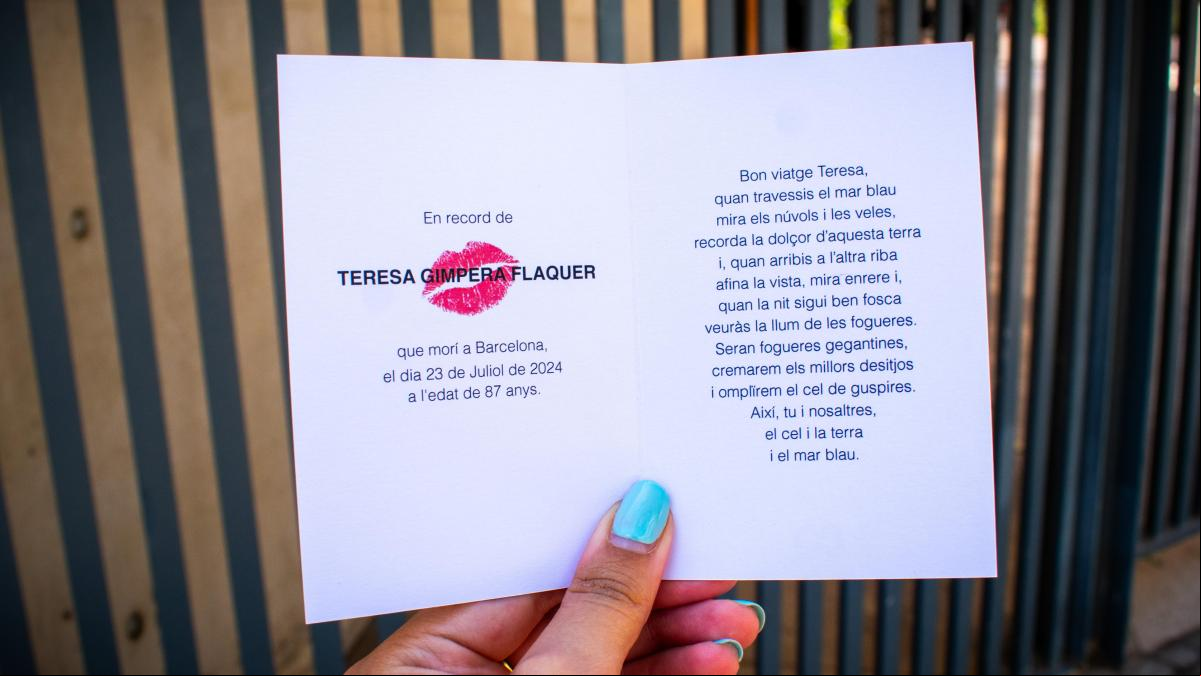 En record de
TERESA GIMPERA FLAQUER
que morí a Barcelona,
el dia 23 de Juliol de 2024
a l'edat de 87 anys.
Bon viatge Teresa,
quan travessis el mar blau
mira els núvols i les veles,
recorda la dolçor d'aquesta terra
i, quan arribis a l'altra riba
afina la vista, mira enrere i,
quan la nit sigui ben fosca
veuràs la llum de les fogueres.
Seran fogueres gegantines,
cremarem els millors desitjos
i omplírem el cel de guspires.
Així, tu i nosaltres,
el cel i la terra
i el mar blau.